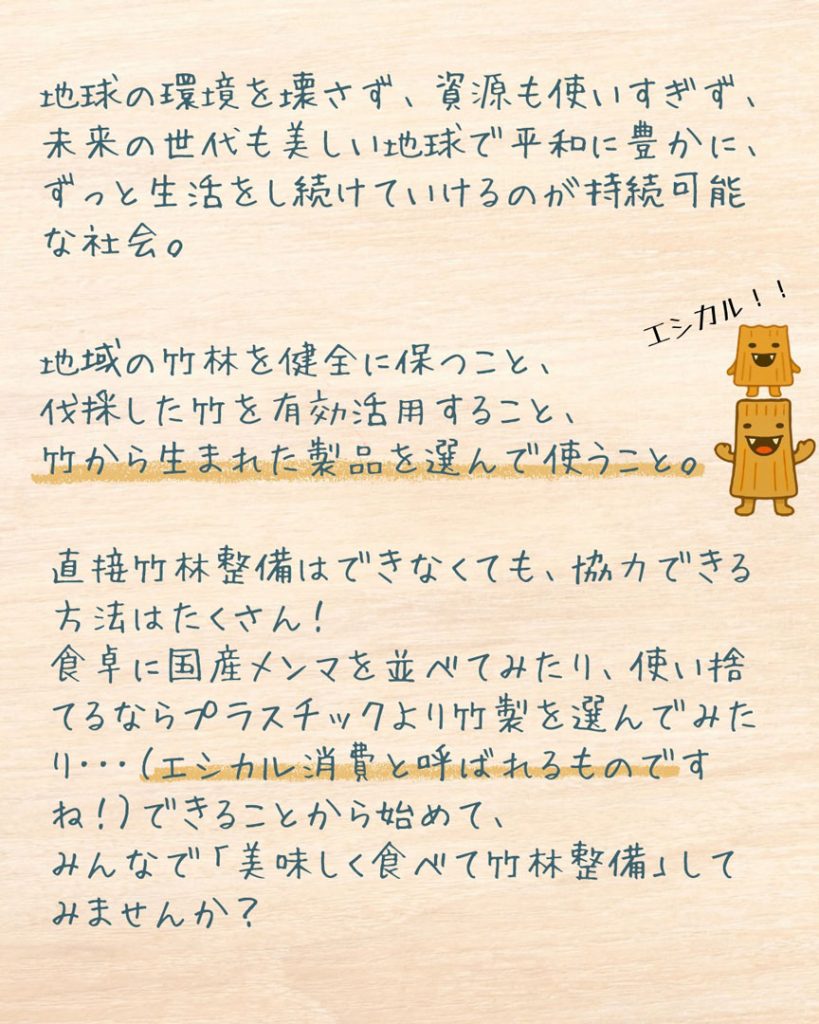 地球の環境を壊さず、資源も使いすぎず、
未来の世代も美しい地球で平和に豊かに、
ずっと生活をし続けていけるのが持続可能
な社会。
エシカル！！
地域の竹林を健全に保つこと、
伐採した竹を有効活用すること、
竹から生まれた製品を選んで使うこと。
直接竹林整備はできなくても、協力できる
方法はたくさん！
食卓に国産メンマを並べてみたり、使い捨
てるならプラスチックより竹製を選んでみた
り・・・(エシカル消費と呼ばれるものです
ね！)できることから始めて、
みんなで「美味しく食べて竹林整備」して
みませんか？